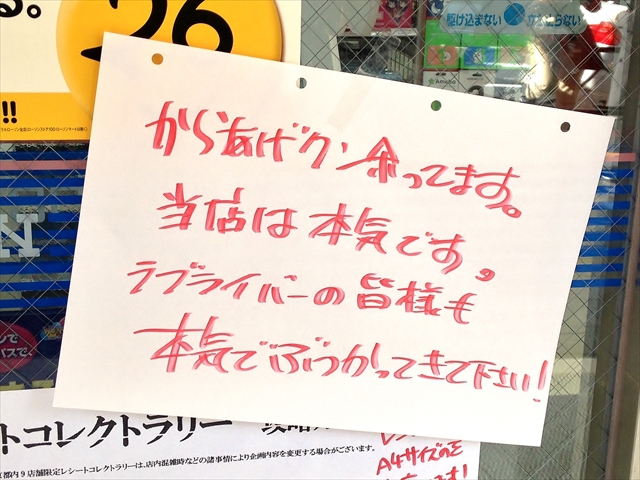 る。
26
!!
駆け込まない 立ち止らない
からあげクン余ってます。
当店は本気です。
ラブライバーの皆様も
本気でぶつかってきて下さい!
N
で
パスで、
トコレクトラリー
京都内9店舗限定レシートコレクトラリーは、店内混雑時などの諸事情により企画内容を変更する場合がございます。
A4サイズのを